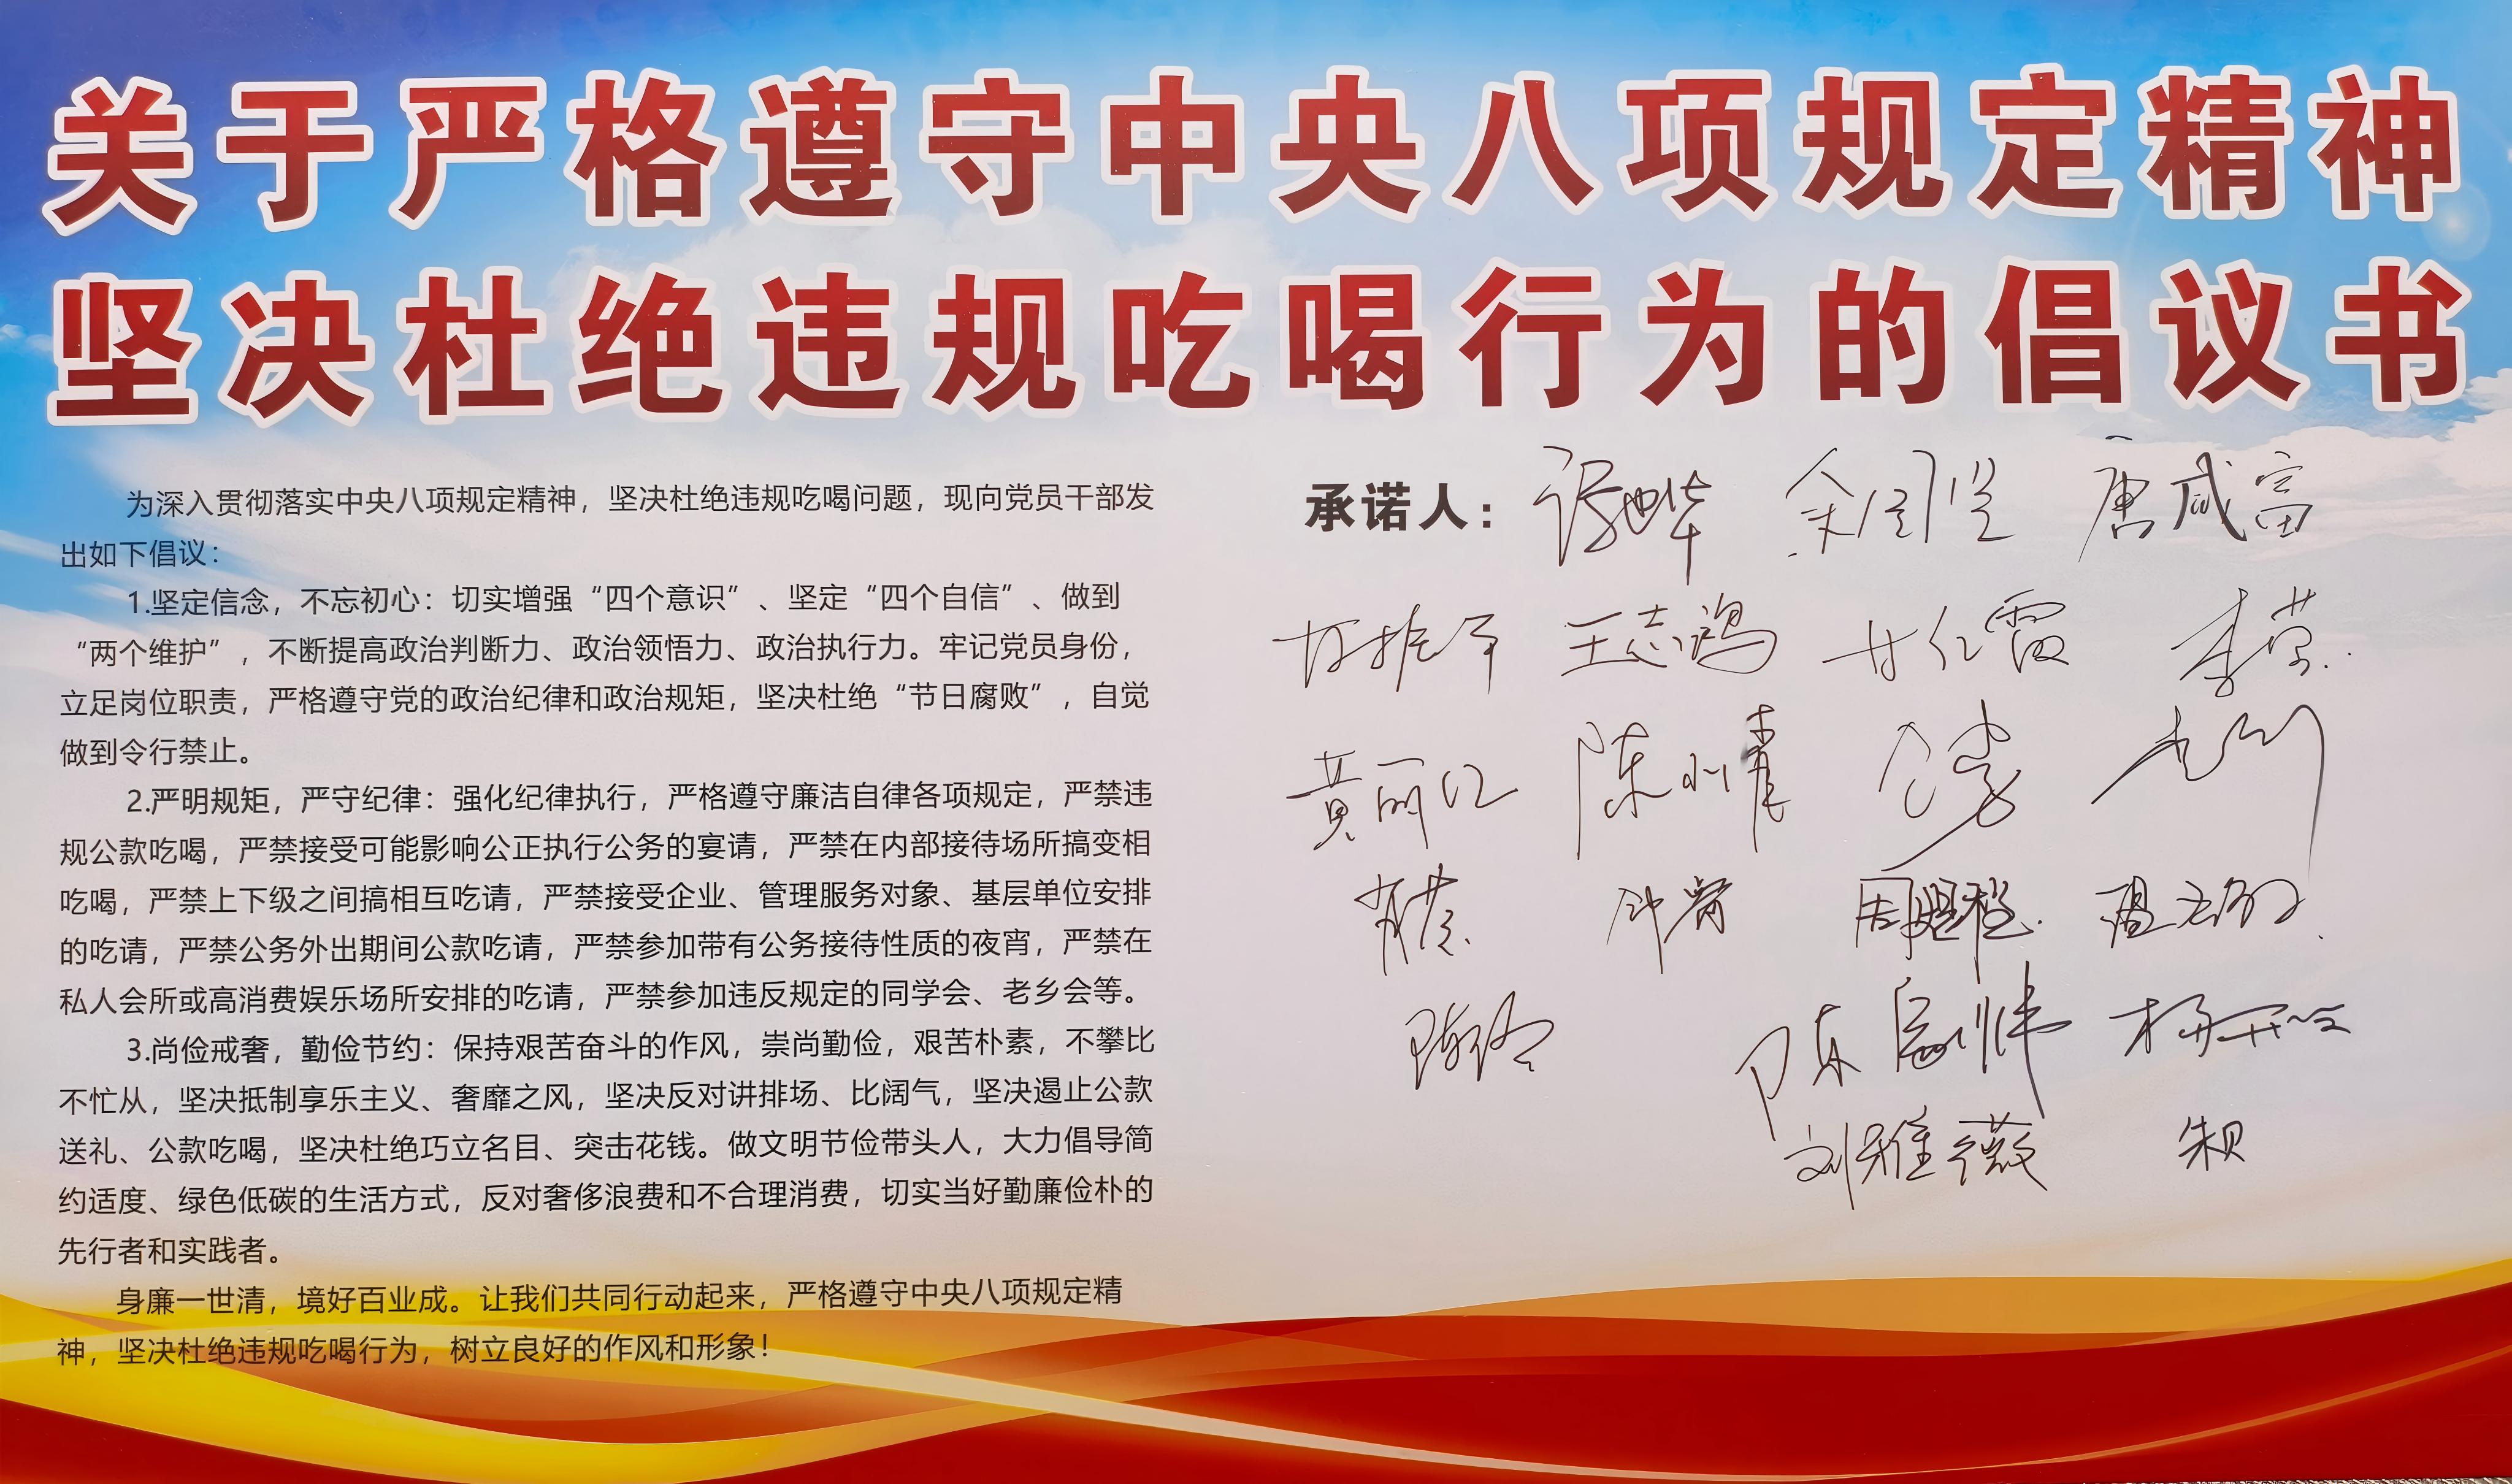 关于严格遵守中央八项规定精神
坚决杜绝违规吃喝行为的倡议书
为深入贯彻落实中央八项规定精神，坚决杜绝违规吃喝问题，现向党员干部发
出如下倡议：
1.坚定信念，不忘初心：切实增强“四个意识”、坚定“四个自信”、做到
“两个维护”，不断提高政治判断力、政治领悟力、政治执行力。牢记党员身份，
立足岗位职责，严格遵守党的政治纪律和政治规矩，坚决杜绝“节日腐败”，自觉
做到令行禁止。
2.严明规矩，严守纪律：强化纪律执行，严格遵守廉洁自律各项规定，严禁违
规公款吃喝，严禁接受可能影响公正执行公务的宴请，严禁在内部接待场所搞变相
吃喝，严禁上下级之间搞相互吃请，严禁接受企业、管理服务对象、基层单位安排
的吃请，严禁公务外出期间公款吃请，严禁参加带有公务接待性质的夜宵，严禁在
私人会所或高消费娱乐场所安排的吃请，严禁参加违反规定的同学会、老乡会等。
3.尚俭戒奢，勤俭节约：保持艰苦奋斗的作风，崇尚勤俭，艰苦朴素，不攀比
不忙从，坚决抵制享乐主义、奢靡之风，坚决反对讲排场、比阔气，坚决遏止公款
送礼、公款吃喝，坚决杜绝巧立名目、突击花钱。做文明节俭带头人，大力倡导简
约适度、绿色低碳的生活方式，反对奢侈浪费和不合理消费，切实当好勤廉俭朴的
先行者和实践者。
身廉一世清，境好百业成。让我们共同行动起来，严格遵守中央八项规定精
神，坚决杜绝违规吃喝行为，树立良好的作风和形象！
承诺人： 唐咸富
王志鸿 甘红霞 李莹
黄丽红
陈玲
刘雅薇